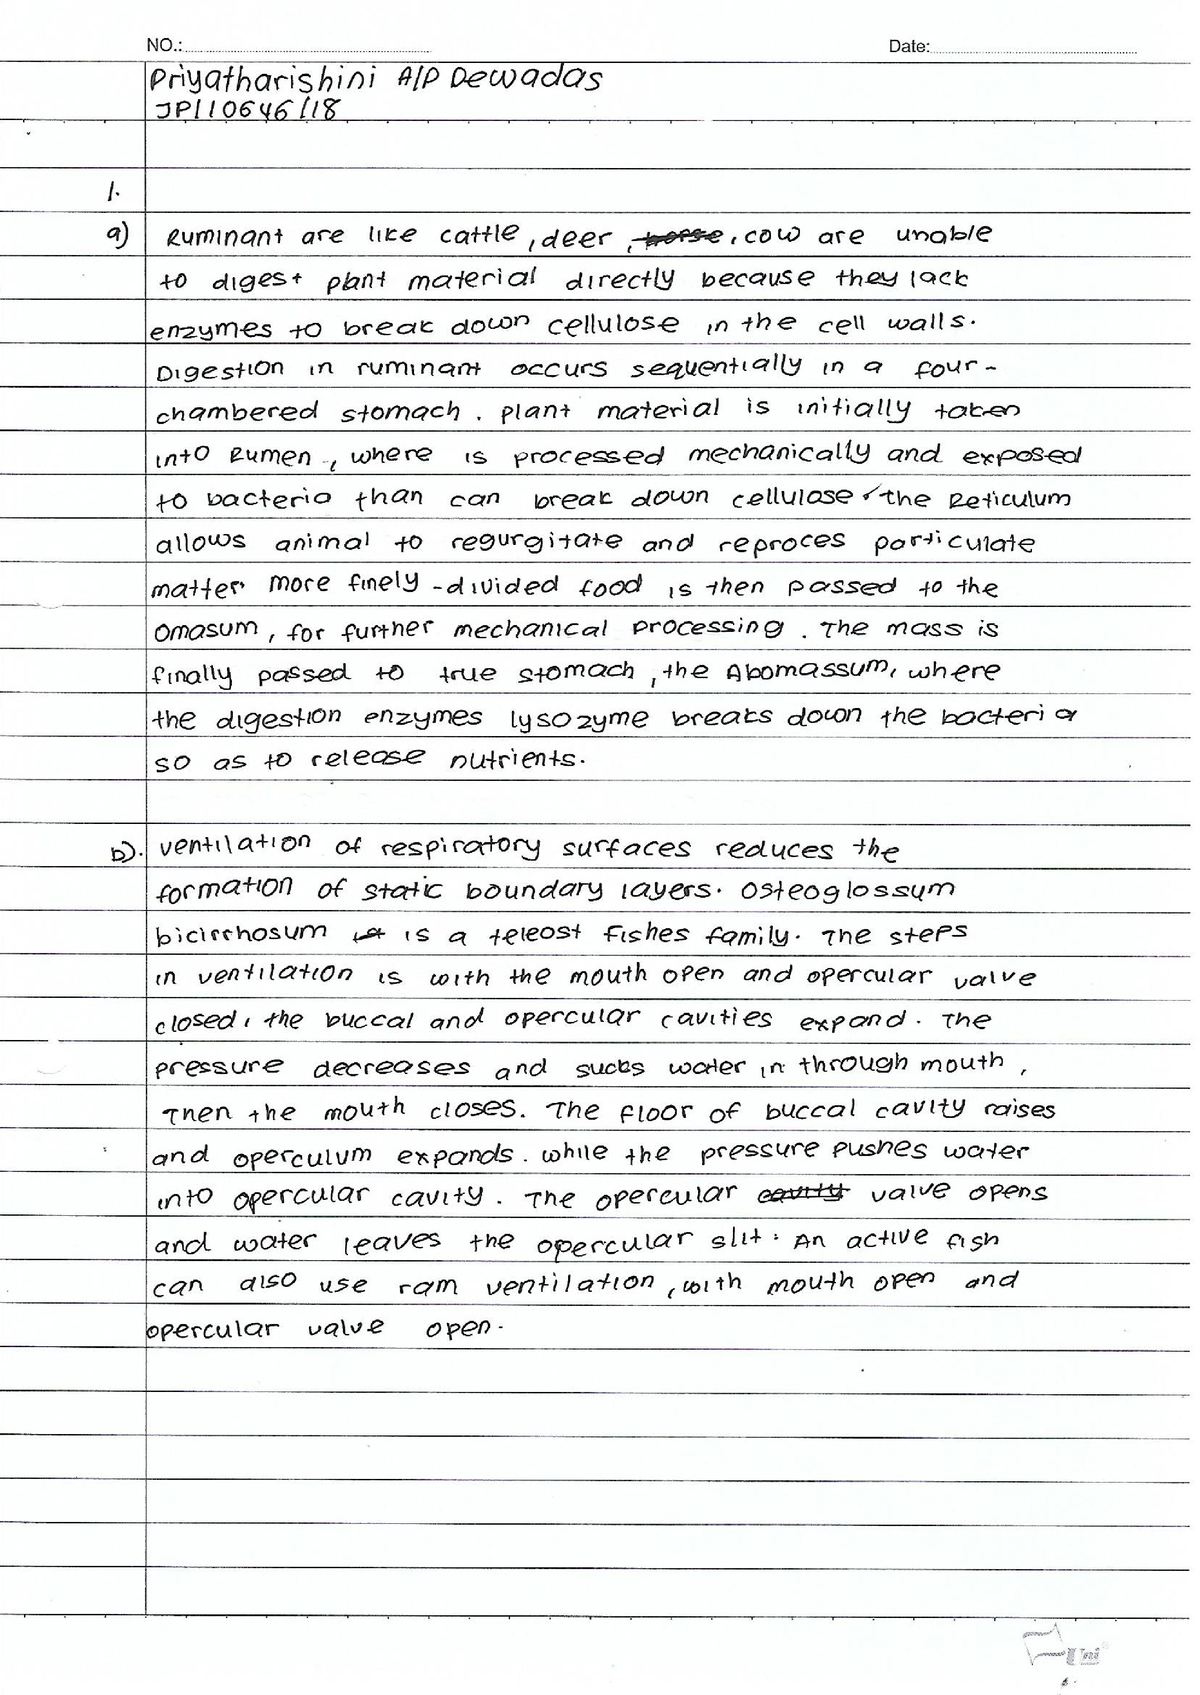 NO.:
Date:
Priyatharishini A/P Dewadas
JP110646/18
1.
a) Ruminant are like cattle, deer, horse, cow are unable
to digest plant material directly because they lack
enzymes to break down cellulose in the cell walls.
Digestion in ruminant occurs sequentially in a four-
chambered stomach. Plant material is initially taken
into Rumen, where is processed mechanically and exposed
to bacteria than can break down cellulose. the Reticulum
allows animal to regurgitate and reproces particulate
matter. more finely-divided food is then passed to the
Omasum, for further mechanical processing. The mass is
finally passed to true stomach, the Abomassum, where
the digestion enzymes lysozyme breaks down the bacteria
so as to release nutrients.
b). ventilation of respiratory surfaces reduces the
formation of static boundary layers. Osteoglossum
bicirrhosum is a teleost fishes family. The steps
in ventilation is with the mouth open and opercular valve
closed, the buccal and opercular cavities expand. The
pressure decreases and sucks water in through mouth,
Then the mouth closes. The floor of buccal cavity raises
and operculum expands. while the pressure pushes water
into opercular cavity. The opercular cavity valve opens
and water leaves the opercular slit. An active fish
can also use ram ventilation, with mouth open and
opercular valve open.
Uni